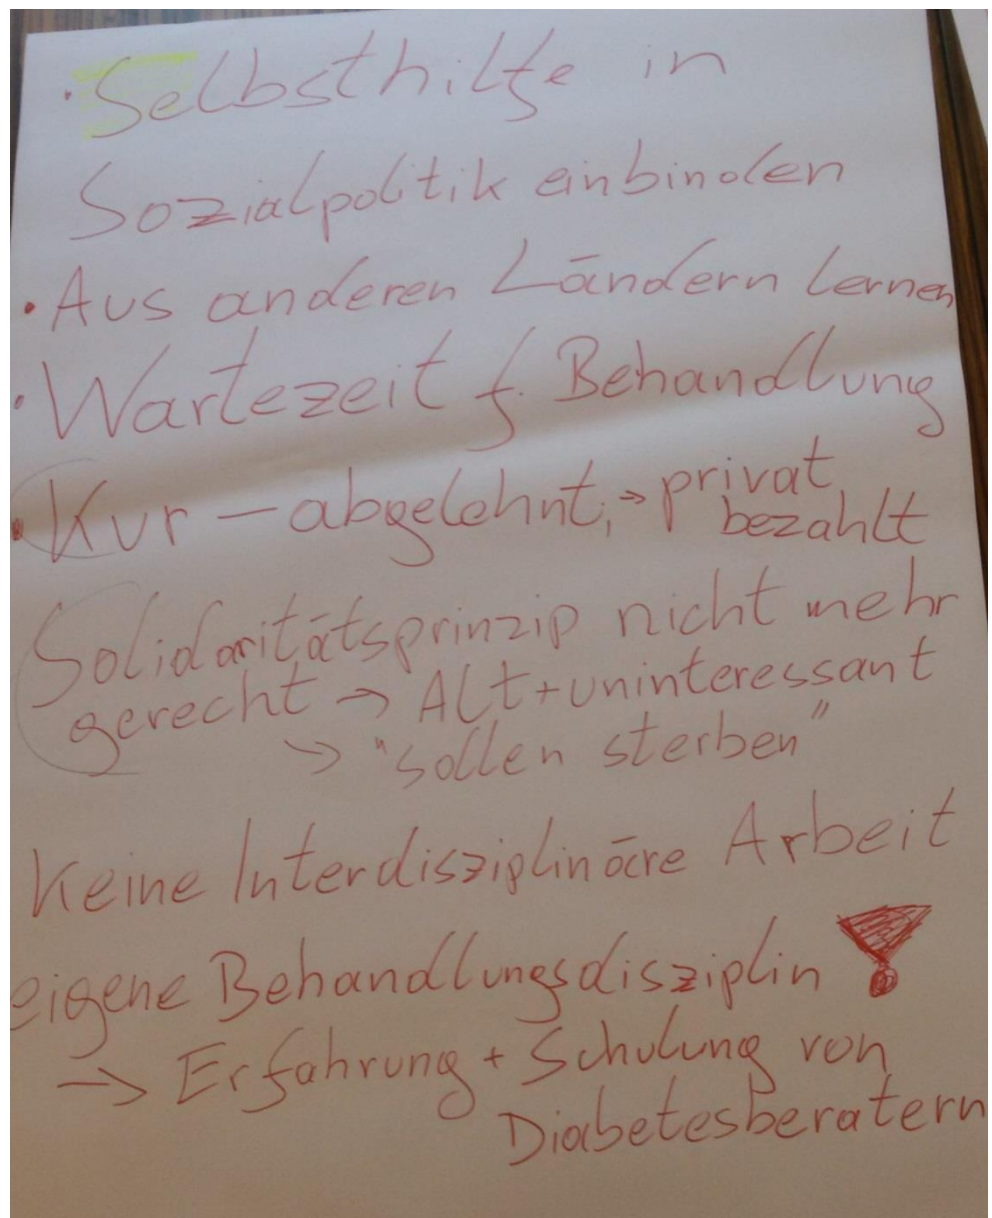 · Selbsthilfe in
Sozialpolitik einbinden
· Aus anderen Ländern lernen
· Wartezeit f. Behandlung
· Kur – abgelehnt, → privat
bezahlt
Solidaritätsprinzip nicht mehr
gerecht → Alt + uninteressant
→ "sollen sterben"
Keine Interdisziplinäre Arbeit
eigene Behandlungsdisziplin !
→ Erfahrung + Schulung von
Diabetesberatern